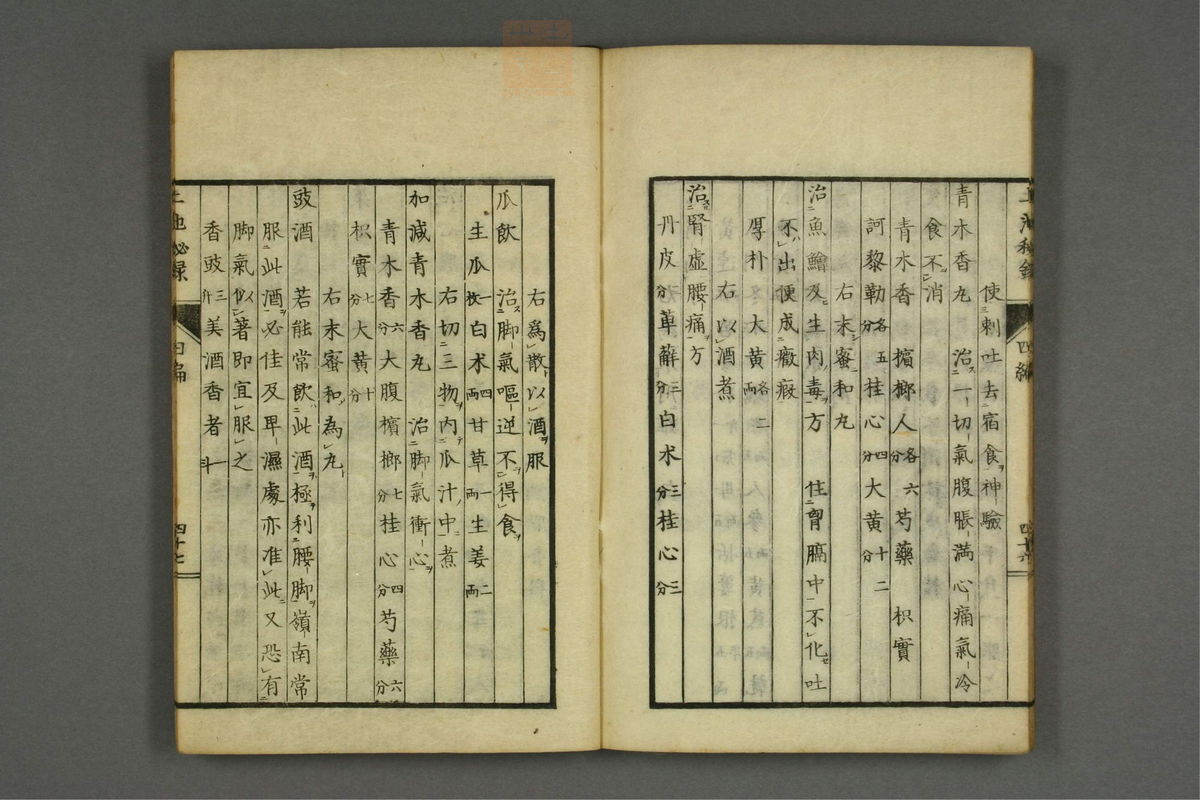 使刺吐去宿食神驗
青木香丸　治一切氣腹脹滿心痛氣冷
食不消
青木香　檳榔人各六分　芍藥　枳實
訶黎勒各五分　桂心四分　大黄十二分
右末蜜和丸
治魚鱠及生肉毒方　住胷膈中不化吐
不出便成癥瘕
厚朴　大黄各二兩
右以酒煮
治腎虛腰痛方
丹皮二分　萆薢三分　白朮三分　桂心三分
四十六
右為散以酒服
瓜飲　治脚氣嘔逆不得食
生瓜一枚　白朮四兩　甘草一兩　生姜二兩
右切三物内瓜汁中煮
加減青木香丸　治脚氣衝心
青木香六分　大腹檳榔七分　桂心四分　芍藥六分
枳實七分　大黄十分
右末蜜和為丸
豉酒　若能常飲此酒極利腰脚嶺南常
服此酒必佳及卑濕處亦准此又恐有
脚氣似著即宜服之
香豉三升　美酒香者一斗
四編
四十七